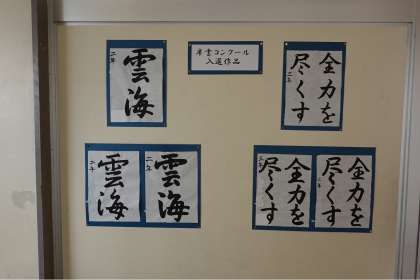 雲海
二年
席書コンクール
入選作品
全力を
尽くす
二年
雲海
二年
雲海
二年
全力を
尽くす
全力を
尽くす